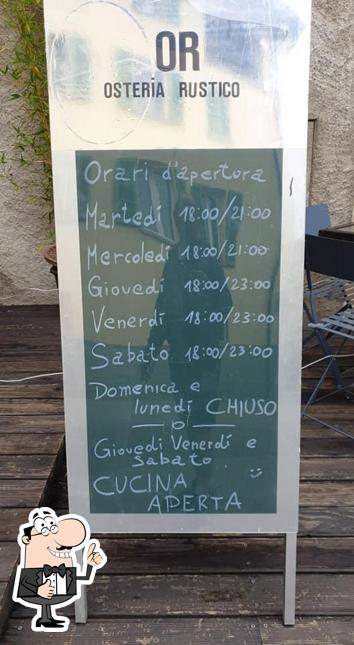 OR
OSTERIA RUSTICO
Orari d'apertura
Martedí 18:00/21:00
Mercoledí 18:00/21:00
Giovedí 18:00/23:00
Venerdí 18:00/23:00
Sabato 18:00/23:00
Domenica e
lunedí CHIUSO
Giovedí Venerdí e
Sabato
CUCINA
APERTA